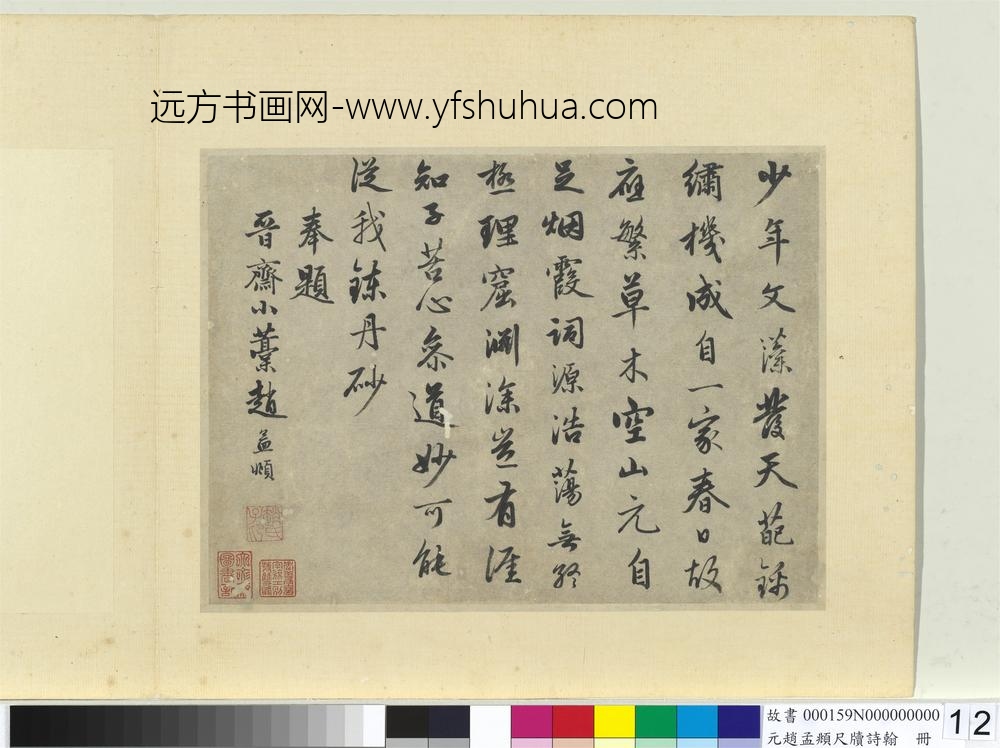 远方书画网-www.yfshuhua.com
少年文藻發天葩錦
繡機成自一家春日故
應繁草木空山元自
足烟霞詞源浩蕩無終
極理窟淵深豈有涯
知子苦心參道妙可能
從我鍊丹砂
奉題
晉齋小藁趙孟頫
故書 000159N000000000
元趙孟頫尺牘詩翰 冊
12